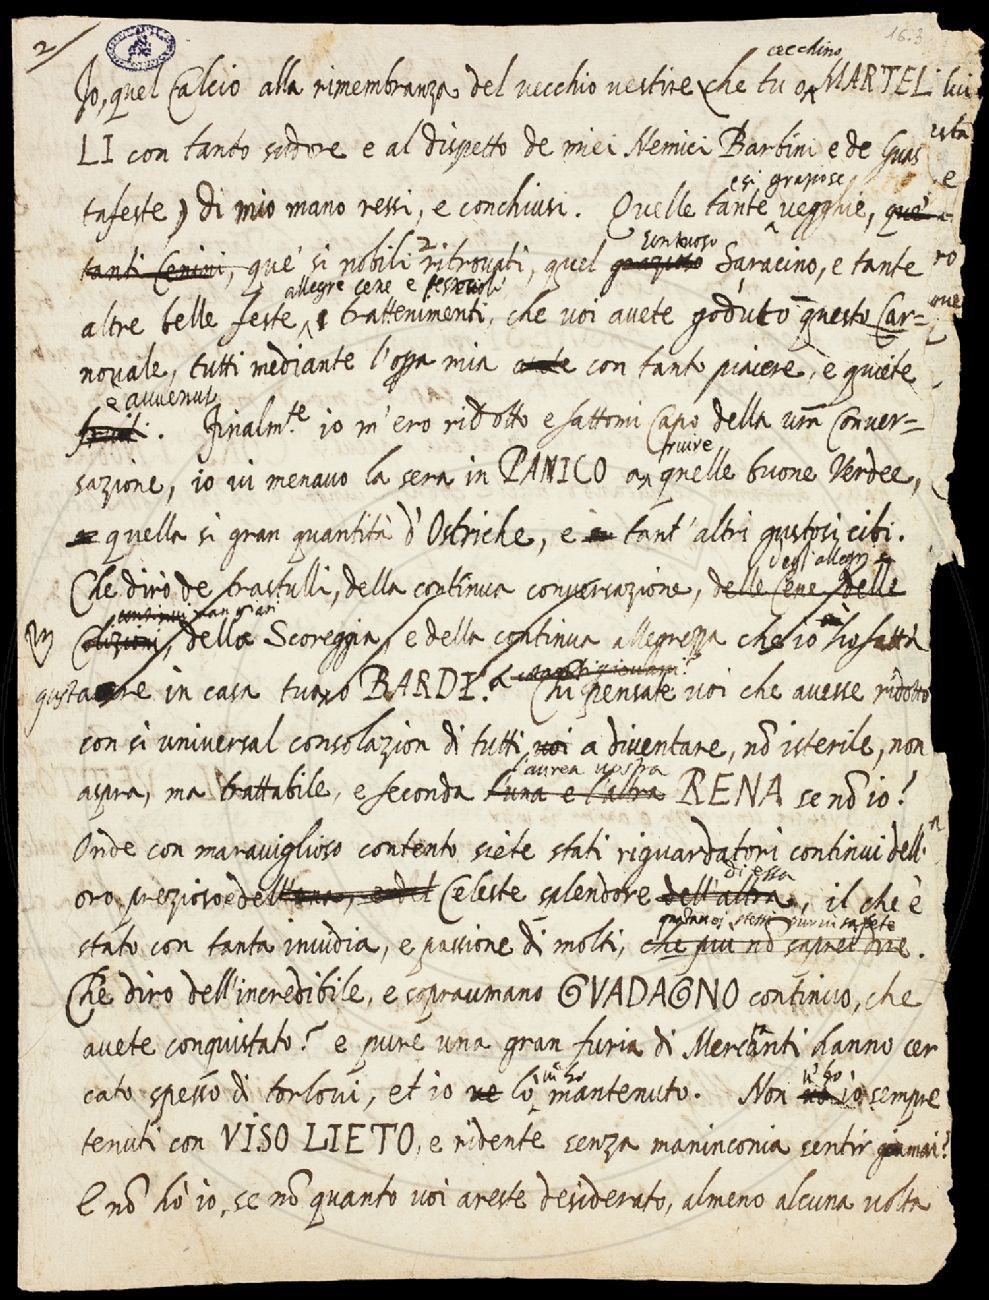 2
cecchino
Jo, quel Calcio alla rimembranza del vecchio vestire che tu o MARTEL
LI con tanto sudore e al dispetto de miei Nemici Bartini e de Guas
e si grapose
tafeste) di mio mano ressi, e conchiusi. Quelle tante vegghie, que
tanti Cenini, que' si nobili ritrovati, quel grazioso Saracino, e tante
suntuoso
allegre cene e
altre belle feste, e trattenimenti, che voi avete goduto questo Car=
novale, tutti mediante l'opa mia con tanto piacere, e quiete
è avvenuto
. Finalmte io m'ero ridotto e fattomi Capo della vra Conver=
sazione, io vi menavo la sera in PANICO a quelle buone Verdee,
fruire
quella si gran quantità d'Ostriche, e tant'altri gustosi cibi.
degl'allegri
Che dirò de trastulli, della continua conversazione, delle Cene delle
continui
Colizioni, della Scoreggia, e della continua allegrezza che io ho fatta
gustare in casa tua o BARDI. Chi pensate voi che avesse ridotto
con si universal consolazion di tutti voi a diventare, nō isterile, non
l'aurea vostra
aspra, ma trattabile, e seconda l'una e l'altra RENA se nō io?
Onde con maraviglioso contento siete stati riguardatori continui dell'
di essa
oro prezioso, e del Celeste splendore dell'altra, il che è
stato con tanta invidia, e passione di molti, che più nō saprei dire.
Che dirò dell'incredibile, e sopraumano GVADAGNO continuo, che
avete conquistato? e pure una gran furia di Mercanti hanno cer
cato spesso di torlovi, et io ve lo mantenuto. Non io sempre
v'ho
v'ho
tenuti con VISO LIETO, e ridente senza maninconia sentir giamai?
E nō hò io, se nō quanto voi areste desiderato, almeno alcuna volta